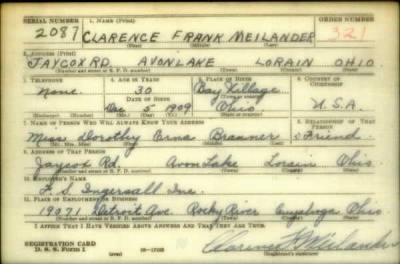 SERIAL NUMBER 1. NAME (Print) ORDER NUMBER
2087 CLARENCE FRANK MEILANDER 321
(First) (Middle) (Last)
2. ADDRESS (Print)
JAYCOX RD AVON LAKE LORAIN OHIO
(Number and street or R. F. D. number) (Town) (County) (State)
3. TELEPHONE 4. AGE IN YEARS 5. PLACE OF BIRTH 6. COUNTRY OF CITIZENSHIP
None. 30 Bay Village
DATE OF BIRTH (Town or county)
Dec 5 1909 Ohio U.S.A.
(Exchange) (Number) (Mo.) (Day) (Yr.) (State or country)
7. NAME OF PERSON WHO WILL ALWAYS KNOW YOUR ADDRESS 8. RELATIONSHIP OF THAT PERSON
Miss Dorothy Erna Friend
(Mr., Mrs., Miss) (First) (Middle) (Last)
9. ADDRESS OF THAT PERSON
Jaycox Rd. Avon Lake Lorain Ohio.
(Number and street or R. F. D. number) (Town) (County) (State)
10. EMPLOYER'S NAME
F. S. Ingersall Inc.
11. PLACE OF EMPLOYMENT OR BUSINESS
19071 Detroit Ave. Rocky River Cuyahoga Ohio
(Number and street or R. F. D. number) (Town) (County) (State)
I AFFIRM THAT I HAVE VERIFIED ABOVE ANSWERS AND THAT THEY ARE TRUE.
REGISTRATION CARD
D. S. S. Form 1 (over) Clarence F Meilander
(Registrant's signature)